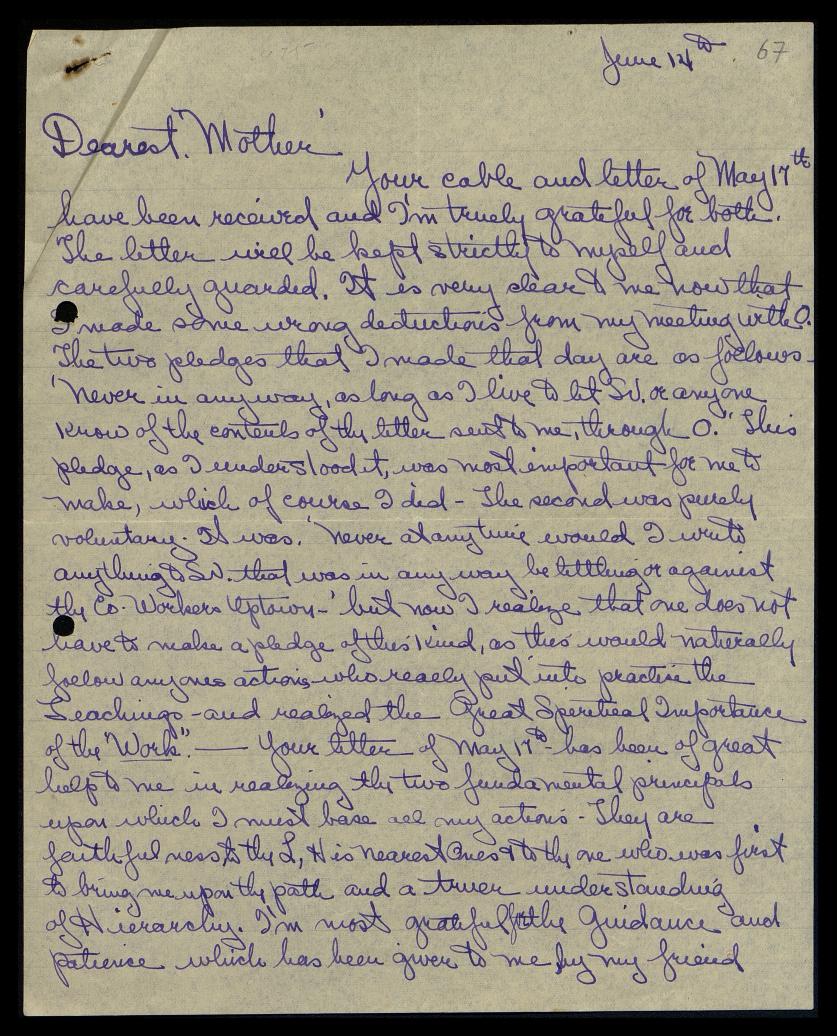 June 14th 67
Dearest "Mother"
Your cable and letter of May 17th
have been received and I'm truely grateful for both.
The letter will be kept strictly to myself and
carefully guarded. It is very clear to me now that
I made some wrong deductions from my meeting with O.
The two pledges that I made that day are as follows -
'Never in any way, as long as I live to let Sv. or anyone
know of the contents of thy letter sent to me, through O.' This
pledge, as I understood it, was most important for me to
make, which of course I did - The second was purely
voluntary. It was. 'Never at anytime would I write
anything to Sv. that was in any way belittling or against
thy Co-Workers Uptown-' but now I realize that one does not
have to make a pledge of this kind, as this would naturally
follow anyones actions who really put into practise the
Teachings - and realized the Great Spiritual Importance
of the "Work". — Your letter of May 17th has been of great
help to me in realizing thy two fundamental principals
upon which I must base all my actions - They are
faithfulness to thy L, His nearest Ones & to thy one who was first
to bring me upon thy path and a truer understanding
of Hierarchy. I'm most grateful for the Guidance and
patience which has been given to me by my friend